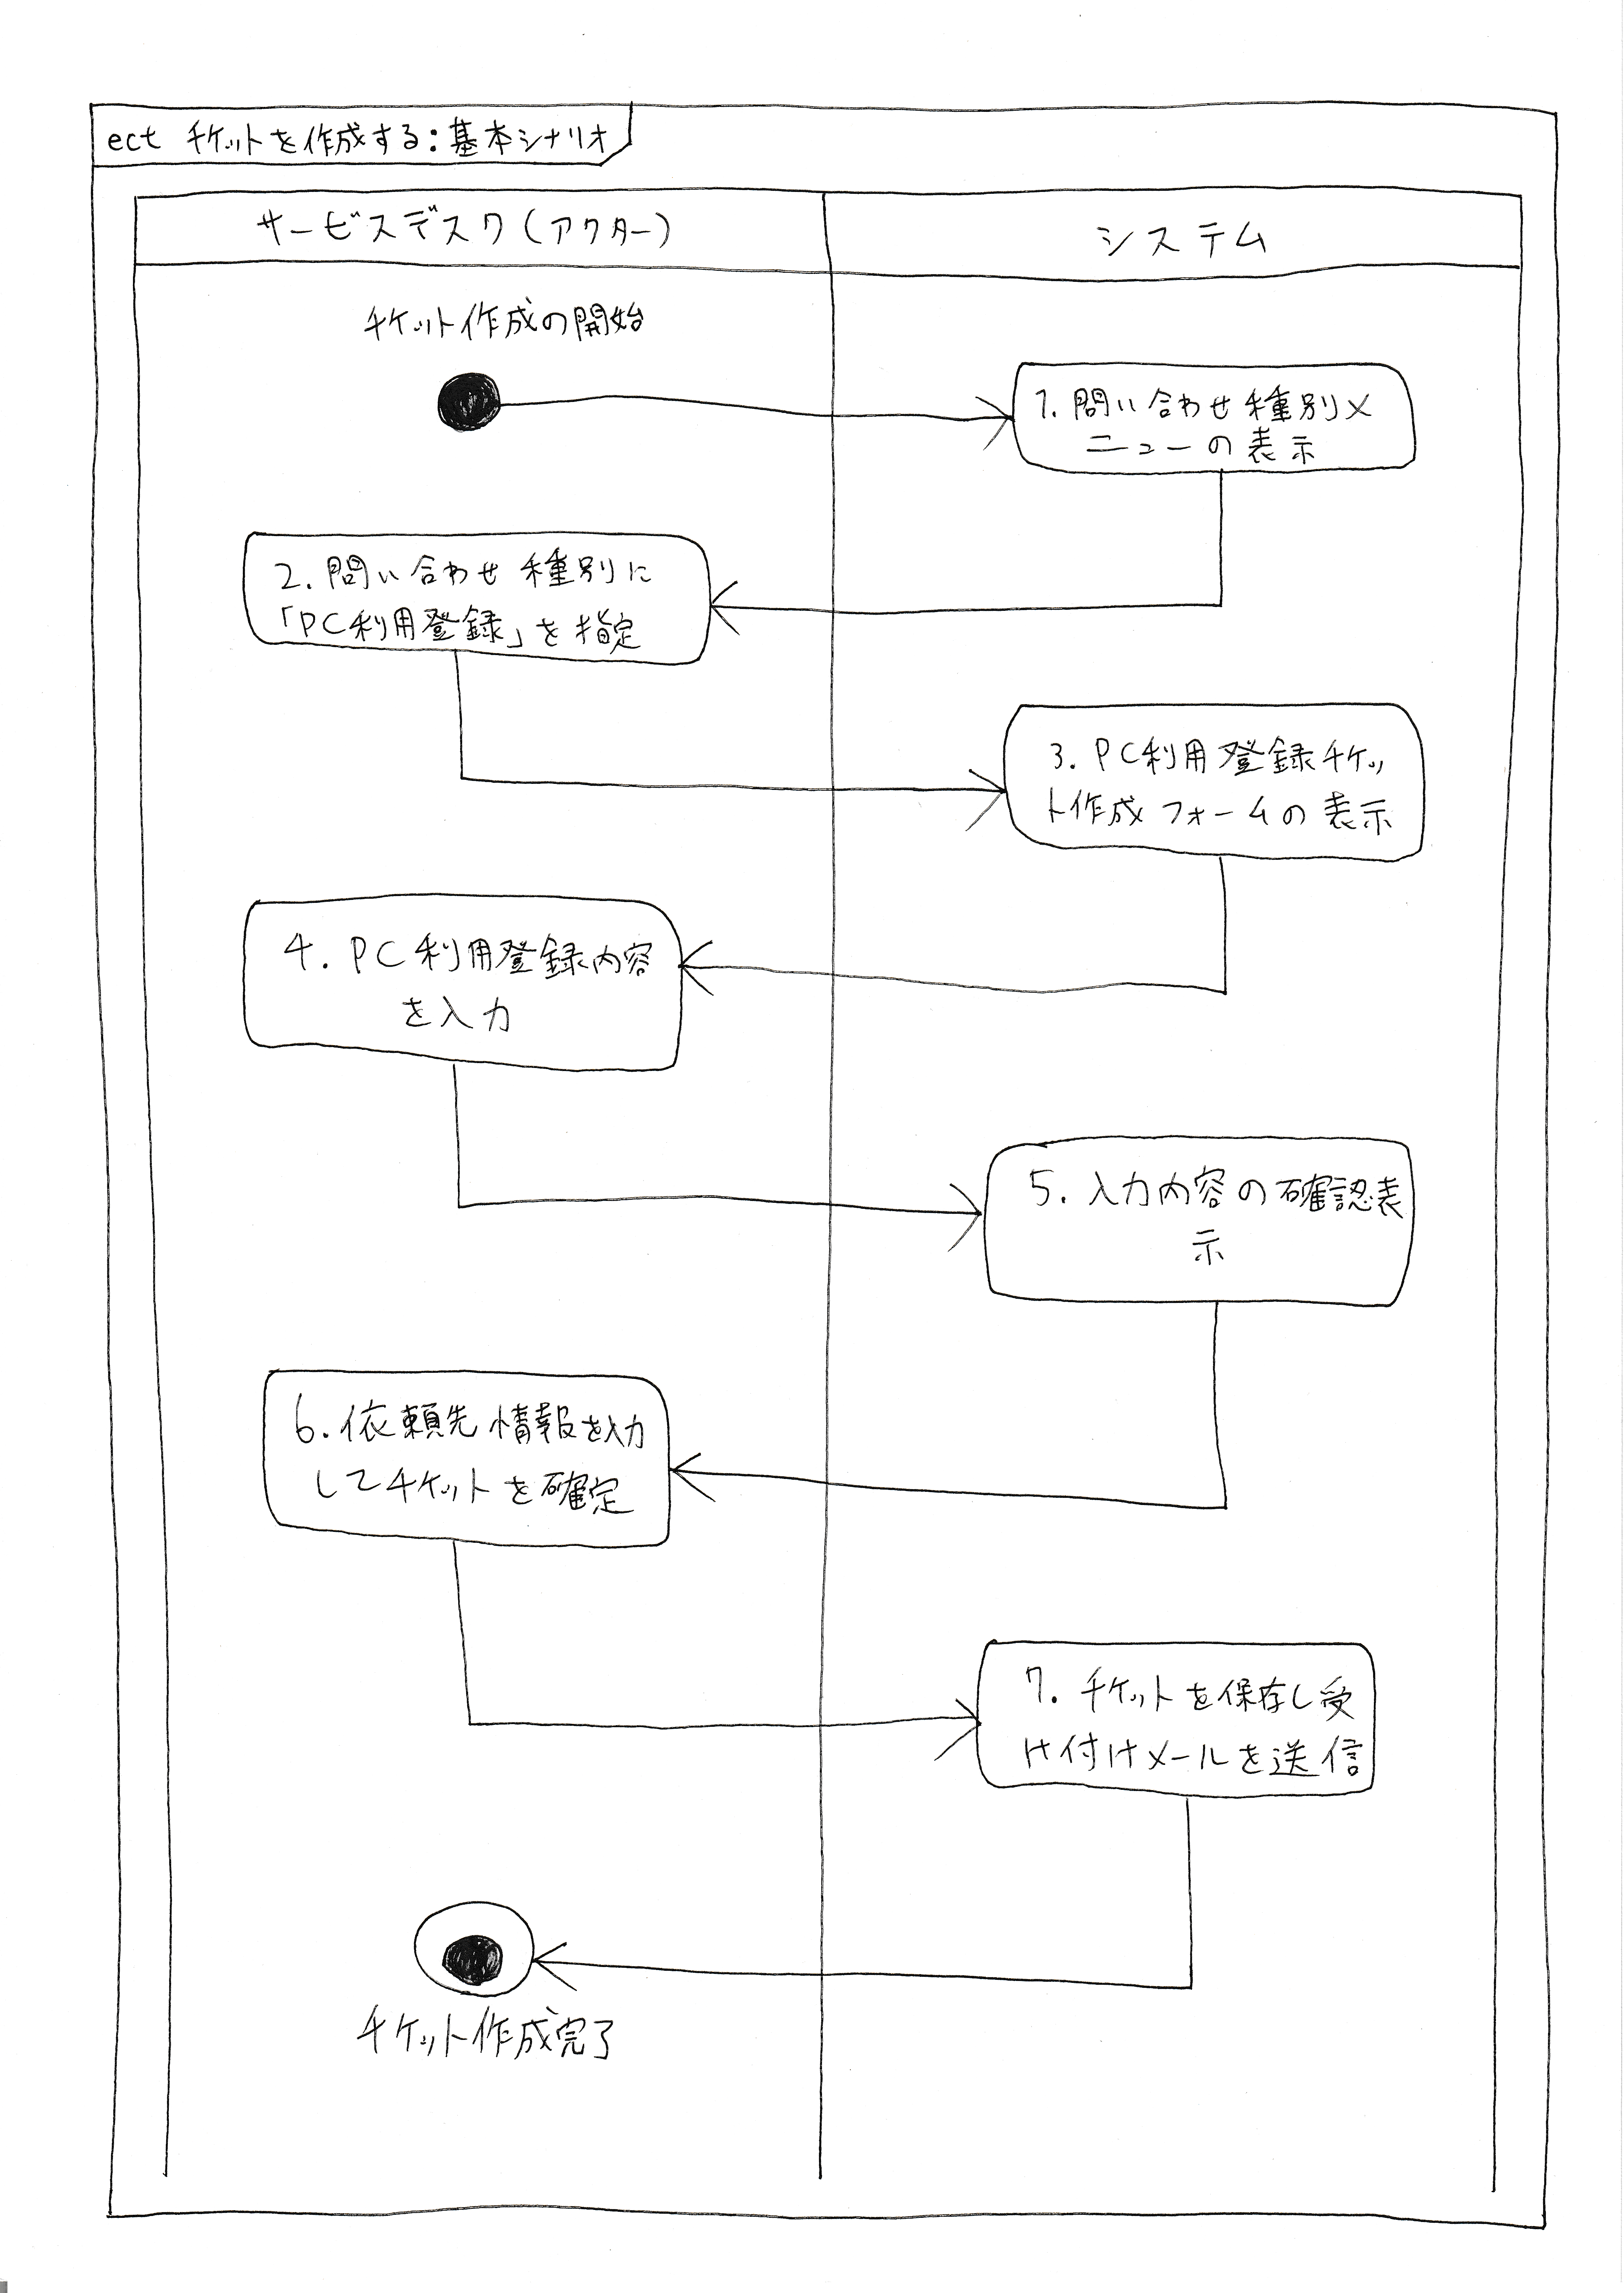 ect チケットを作成する:基本シナリオ
サービスデスク(アクター)
システム
チケット作成の開始
1. 問い合わせ種別メ
ニューの表示
2. 問い合わせ種別に
「PC利用登録」を指定
3. PC利用登録チケッ
ト作成フォームの表示
4. PC利用登録内容
を入力
5. 入力内容の確認表
示
6. 依頼先情報を入力
してチケットを確定
7. チケットを保存し受
け付けメールを送信
チケット作成完了